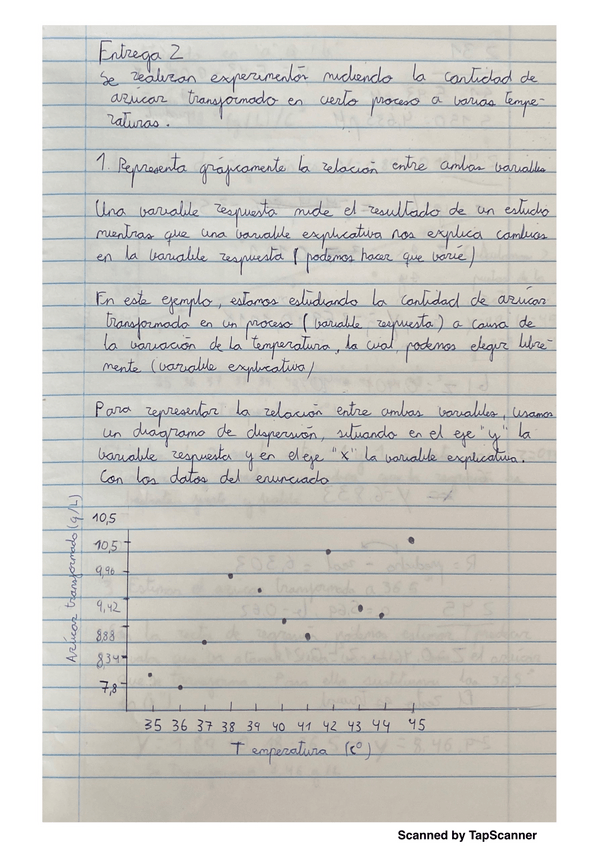 Entrega 2
Se realizan experimentos midiendo la cantidad de
azúcar transformado en cierto proceso a varias tempe-
raturas.
1. Representa gráficamente la relación entre ambas variables
Una variable respuesta mide el resultado de un estudio
mientras que una variable explicativa nos explica cambios
en la variable respuesta (podemos hacer que varíe)
En este ejemplo, estamos estudiando la cantidad de azúcar
transformada en un proceso (variable respuesta) a causa de
la variación de la temperatura, la cual, podemos elegir libre-
mente (variable explicativa)
Para representar la relación entre ambas variables, usamos
un diagrama de dispersión, situando en el eje "y" la
variable respuesta y en el eje "x" la variable explicativa.
Con los datos del enunciado
Azúcar transformado (g/L)
10,5
10,5
9,96
9,42
8,88
8,34
7,8
35 36 37 38 39 40 41 42 43 44 45
Temperatura (Cº)
Scanned by TapScanner